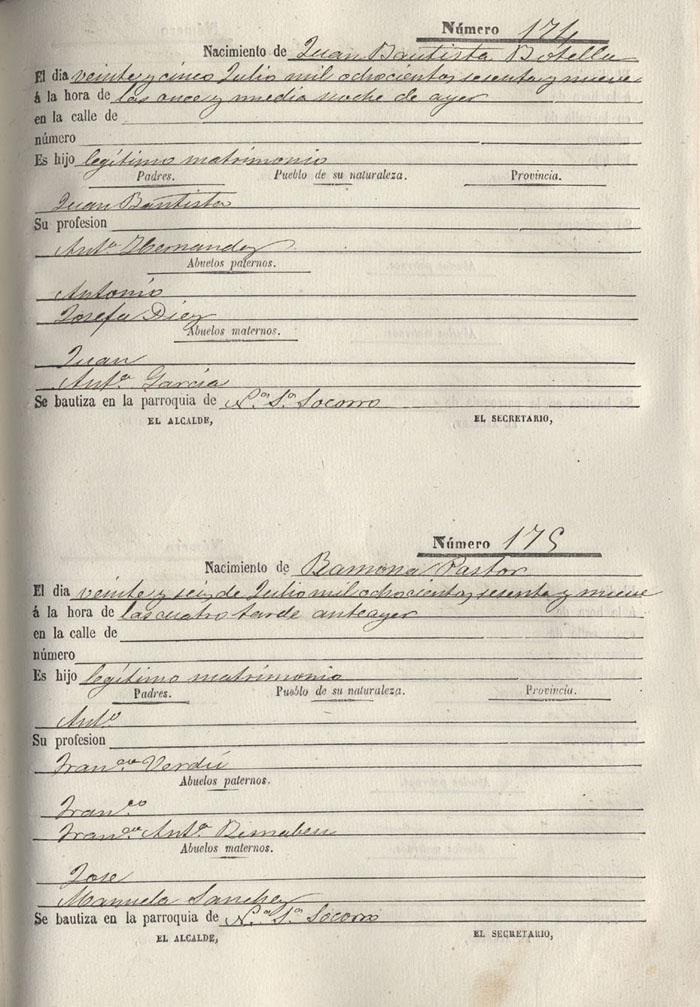 Número 174
Nacimiento de Juan Bautista Botella
El dia veinte y cinco Julio mil ochocientos sesenta y nueve
á la hora de las once y media noche de ayer
en la calle de
número
Es hijo legítimo matrimonio
Padres. Pueblo de su naturaleza. Provincia.
Juan Bautista
Su profesion
Antª Hernandez
Abuelos paternos.
Antonio
Josefa Diez
Abuelos maternos.
Juan
Antª García
Se bautiza en la parroquia de Nª Sª Socorro
EL ALCALDE, EL SECRETARIO,
Número 175
Nacimiento de Ramona Pastor
El dia veinte y seis de Julio mil ochocientos sesenta y nueve
á la hora de las cuatro tarde anteayer
en la calle de
número
Es hijo legítimo matrimonio
Padres. Pueblo de su naturaleza. Provincia.
Antº
Su profesion
Franca Verdú
Abuelos paternos.
Franco
Franca Antª Bernabeu
Abuelos maternos.
Jose
Manuela Sanchez
Se bautiza en la parroquia de Nª Sª Socorro
EL ALCALDE, EL SECRETARIO,